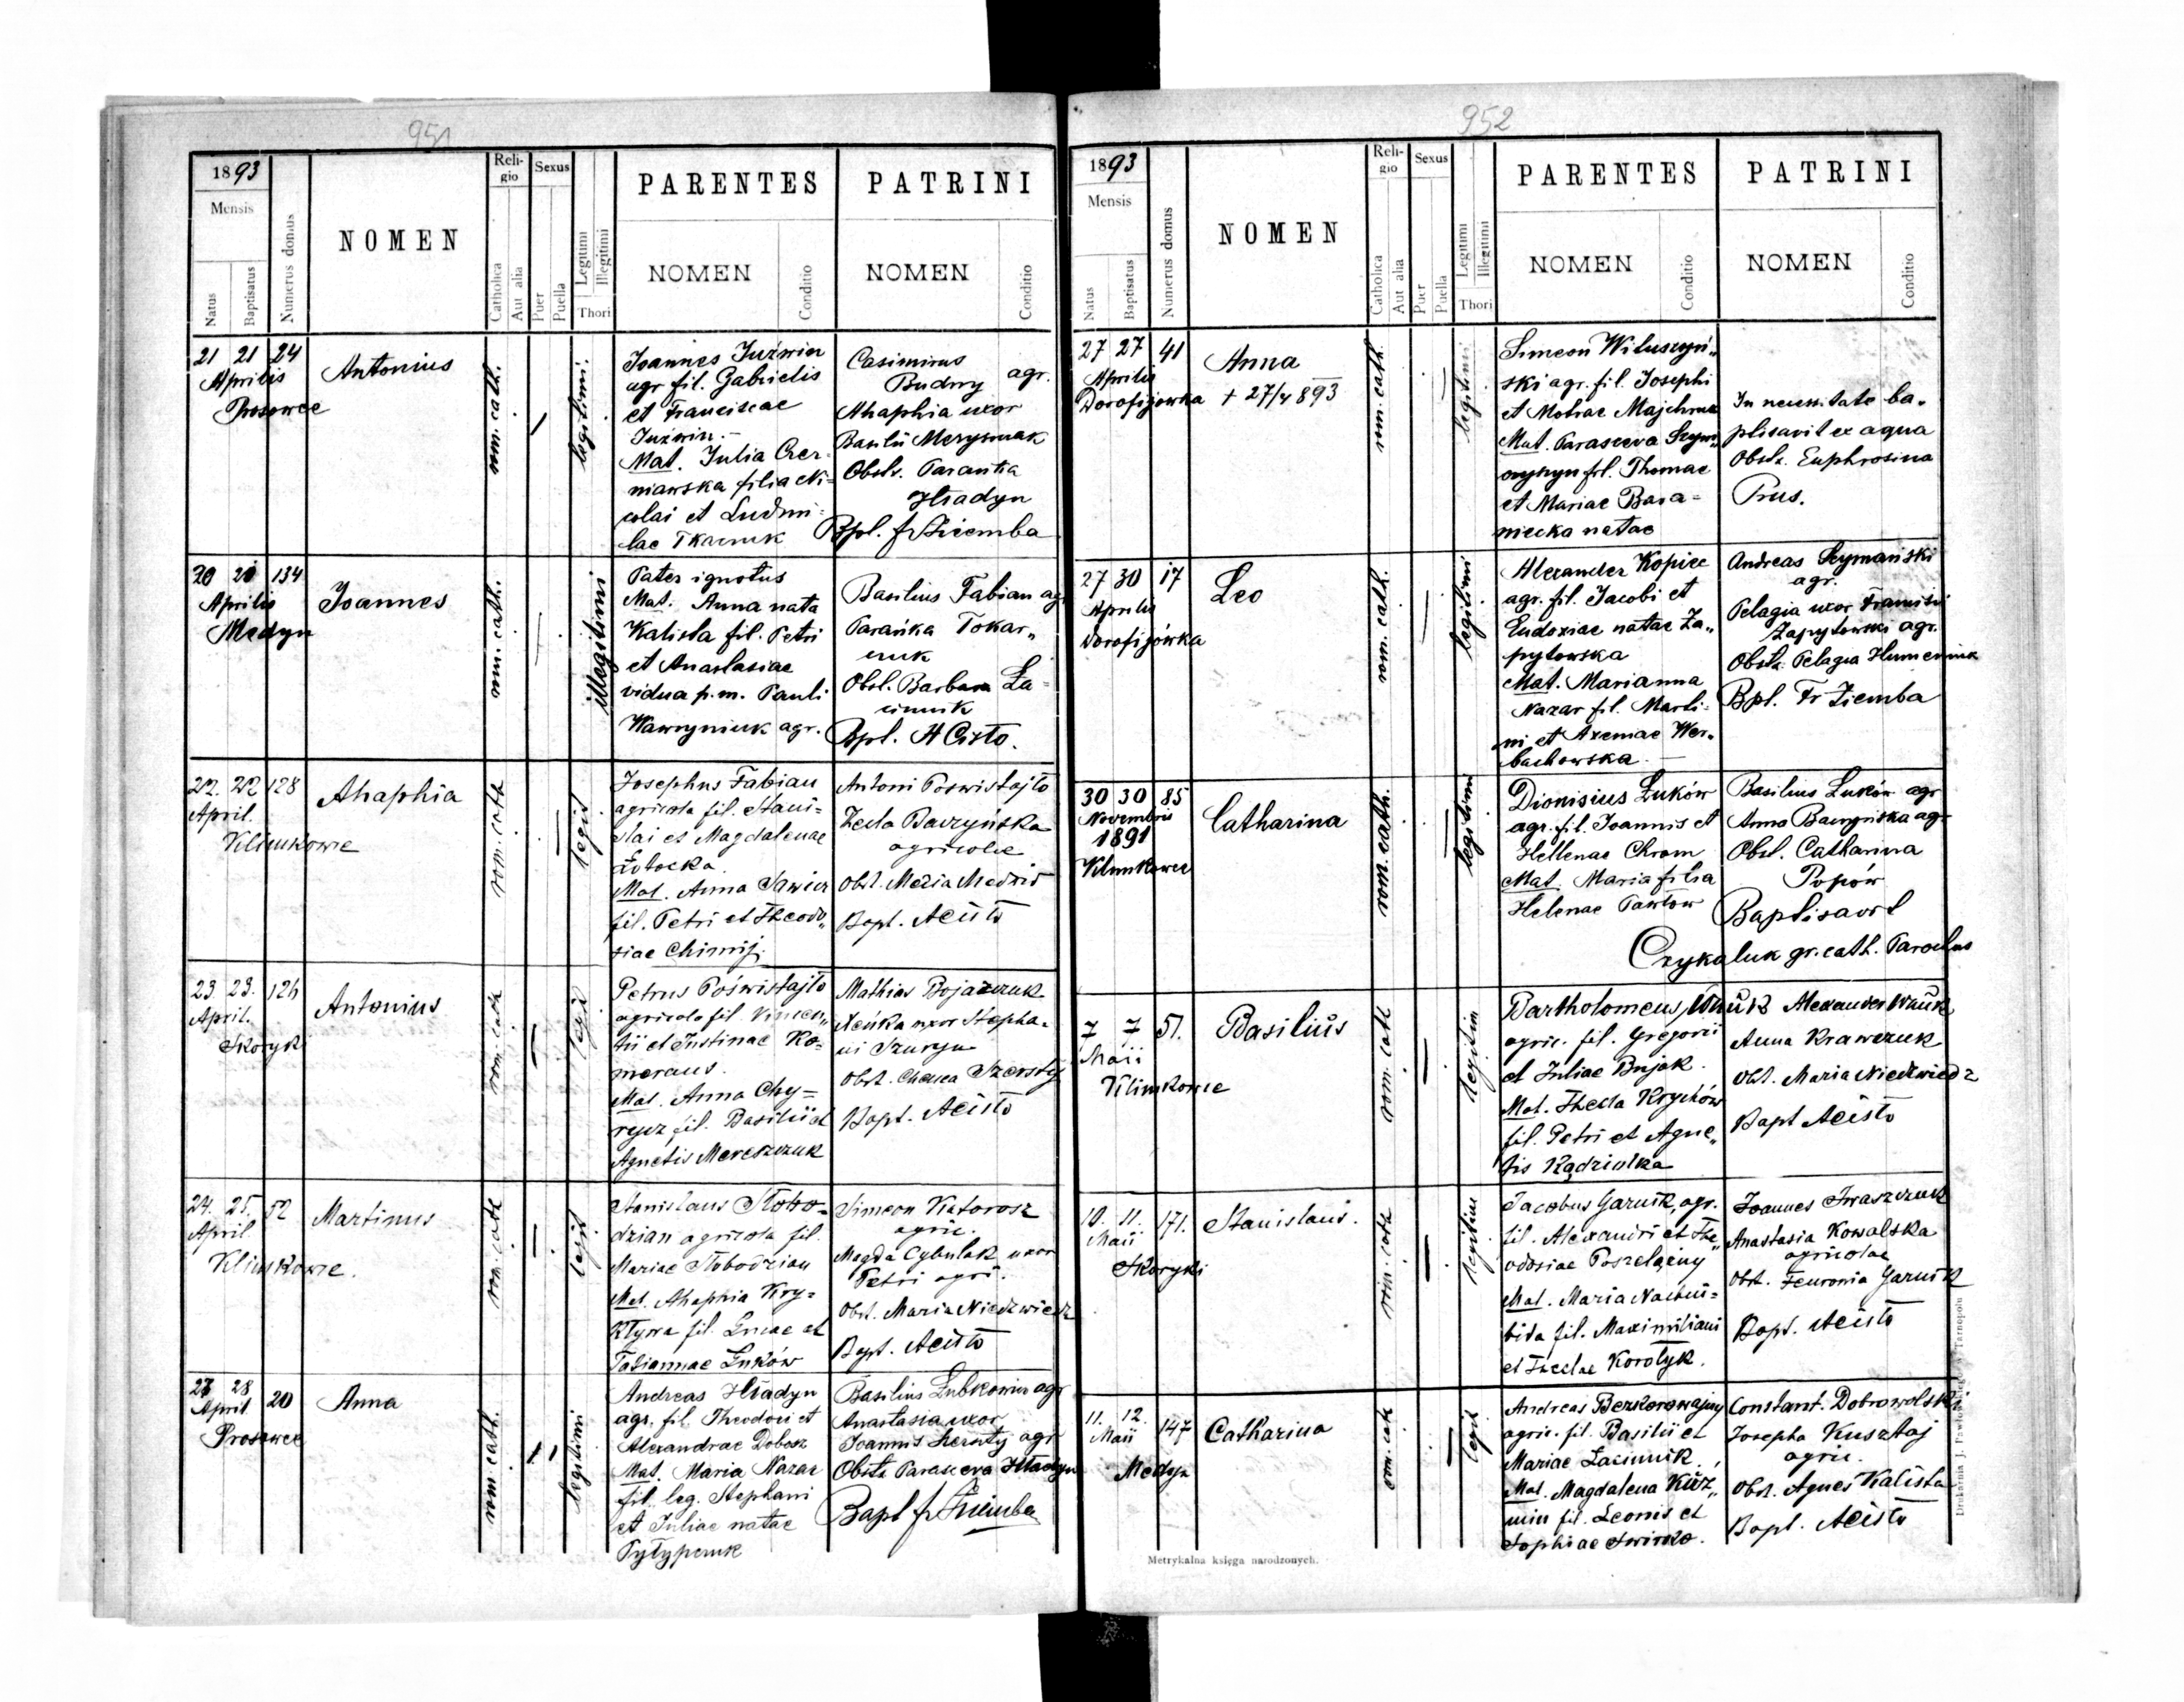 951
1893
Mensis
Natus
Baptisatus
Numerus domus
NOMEN
Religio
Catholica
Aut alia
Sexus
Puer
Puella
Legitimi
Illegitimi
Thori
PARENTES
NOMEN
Conditio
PATRINI
NOMEN
Conditio
21 21 24
Aprilis
Prosowce
Antonius
rom. cath.
legitimi.
Joannes Juźwin
agr fil. Gabrielis
et Franciscae
Juźwin.-
Mat. Julia Czer-
niawska filia Ni=
colai et Ludmi-
lae Tkaczuk
Casimirus
Budny agr.
Ahaphia uxor
Basilii
Obst. Parańka
Hładyn
Bpl. fr Ziemba
20 21 134
Aprilis
Medyn
Joannes
rom. cath.
illegitimi
Pater ignotus
Mat. Anna nata
Kalista fil. Petri
et Anastasiae
vidua p.m. Pauli
Wawryniuk agr.
Basilius Fabian agr
Parańka Tokar„
czuk
Obst. Barbara Ła-
ciunik
Bpl. A Cisło.
22. 22 128
April.
Klimkowce
Ahaphia
rom. cath
legit
Josephus Fabian
agricola fil. Stani=
slai et Magdalenae
Łotocka.
Mat. Anna Sawicz
fil. Petri et Theodo„
siae Chimij.
Antoni Poswistajło
Zecla Baczyńska
agricolae
Obst. Maria Medwid
Bapt. ACisło
23 23. 126
April.
Skoryki
Antonius
rom. cath
legit
Petrus Poświstajło
agricola fil Vincen„
tii et Justinae Ko=
meraus.
Mat. Anna Chy=
rycz fil. Basilii et
Agnetis Mereszczuk
Mathias Bojaszczuk
Xeńka uxor Stepha-
ni Szuryn
Obst. Szerstij
Bapt. ACisło
24. 25. 52
April.
Klimkowce.
Martinus
rom. cath
legit
Stanislaus Słobo=
dzian agricola fil.
Mariae Słobodzian
Mat. Ahaphia Kry=
kływa fil. Lucae et
Tatiannae Łuków
Simeon Katorosz
agric.
Magda Cybulak uxor
Petri agri.
Obst. Maria Niedzwiedz
Bapt. ACisło
27 28 20
April
Prosowce
Anna
rom. cath.
legitimi
Andreas Hładyn
agr. fil. Theodori et
Alexandrae Dobosz
Mat. Maria Nazar
fil. leg. Stephani
et Juliae natae
Pytypczuk
Basilius Lubkowicz agr
Anastasia uxor
Joannis Szersty agr
Obst. Parasceva Hładyn
Bapt fr Ziemba
952
1893
Mensis
Natus
Baptisatus
Numerus domus
NOMEN
Religio
Catholica
Aut alia
Sexus
Puer
Puella
Legitimi
Illegitimi
Thori
PARENTES
NOMEN
Conditio
PATRINI
NOMEN
Conditio
27 27 41
Aprilis
Dorofijowka
Anna
+ 27/4 893
rom. cath.
legitimi
Simeon Wituszyń„
ski agr. fil. Josephi
et Motrae Majchruk
Mat. Parasceva
fil. Thomae
et Mariae Bara=
niecka natae
In necessitate ba-
ptisavit ex aqua
Obst. Euphrosina
Prus.
27 30 17
Aprilis
Dorofijówka
Leo
rom. cath.
legitimi
Alexander Kopice
agr. fil. Jacobi et
Eudoxiae natae Za„
pytowska
Mat. Marianna
Nazar fil. Marti-
ni et Axeniae Wer-
bachowska.
Andreas Szymański
agr.
Pelagia uxor Francisci
Zapytowski agr.
Obst. Pelagia Humeniuk
Bpl. Fr Ziemba
30 30 85
Novembris
1891
Klimkowce
Catharina
rom. cath.
legitimi
Dionisius Łuków
agr. fil. Joannis et
Hellenae Chrom
Mat. Maria filia
Helenae Pawłow
Basilius Łuków agr
Anna Baczyńska agr
Obst. Catharina
Popów
Baptisavit
Czykaluk gr. cath. Parochus
7 7 51.
Maii
Klimkowce
Basilius
rom. cath
legitim
Bartholomeus Wnuk
agric. fil. Gregorii
et Juliae Bujak.
Mat. Thecla Krychów
fil. Petri et Agne„
tis Kądziolka
Alexander Wnuk
Anna Krawczuk
Obst. Maria Niedzwiedz
Bapt ACisło
10. 11. 171.
Maii
Skoryki
Stanislaus.
rom. cath
legitim
Jacobus Garnik, agr.
fil. Alexandri et The„
odosiae Poszelężny
Mat. Maria
fil. Maximiliani
et Theclae Korotyk.
Joannes Iwaszczuk
Anastasia Kowalska
agricolae
Obst. Feuronia Garnik
Bapt. ACisło
11. 12. 147
Maii
Medyn
Catharina
rom. cath
legit
Andreas Bezkorowajny
agric. fil. Basilii et
Mariae Łaciunik.
Mat. Magdalena Kuź„
min fil. Leonis et
Sophiae Swirsko.
Constant. Dobrowolski
Josepha Kusztaj
agric.
Obst. Agnes Kalista
Bapt. ACisło
Metrykalna księga narodzonych.